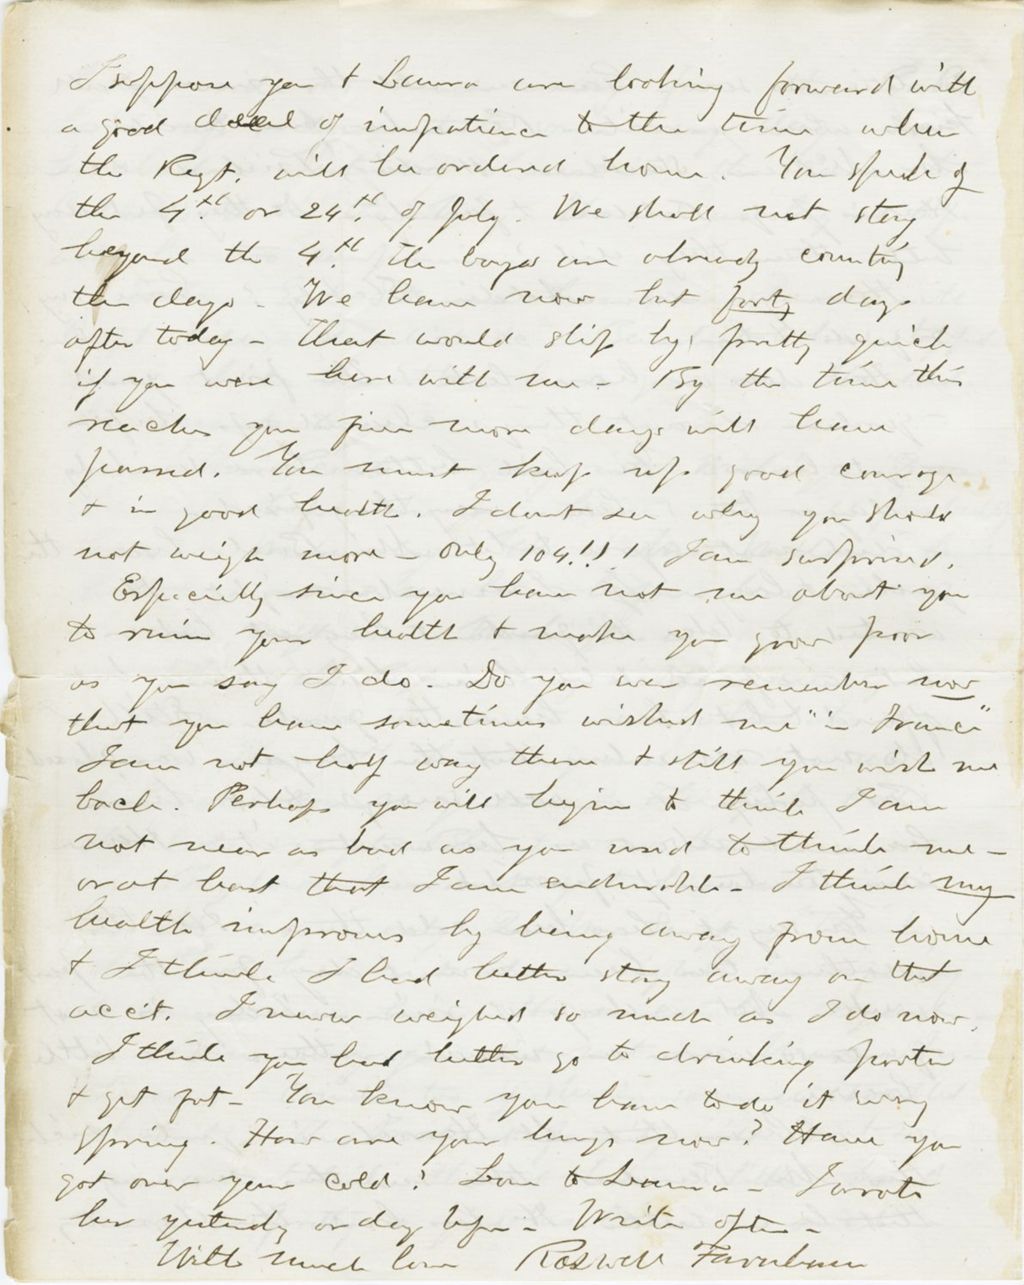 I suppose you & Laura are looking forward with
a good deal of impatience to the time when
the Regt. will be ordered home. You speak of
the 4th. or 24th. of July. We shall not stay
beyond the 4th. The boys are already counting
the days - We have now but forty days
after today - That would slip by, pretty quick
if you were here with me - By the time this
reaches you five more days will have
passed. You must keep up good courage
& in good health. I dont see why you should
not weigh more - only 104!!! I am surprised.
Especially since you have not me about you
to ruin your health & make you grow poor
as you say I do. Do you ever remember now
that you have sometimes wished me "in France"
I am not half way there & still you wish me
back. Perhaps you will begin to think I am
not near as bad as you used to think me -
or at least that I am endurable - I think my
health improves by being away from home
& I think I had better stay away on that
acc't. I never weighed so much as I do now.
I think you had better go to drinking porter
& get fat - You know you have to do it every
spring. How are your lungs now? Have you
got over your cold? Love to Laura - I wrote
her yesterday or day before - Write often -
With much love Roswell Farnham